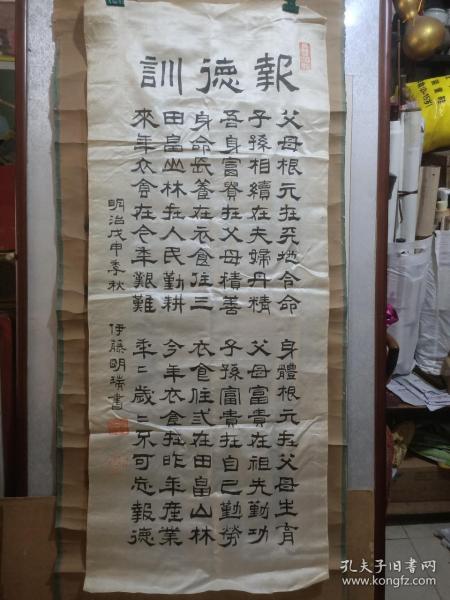 報徳訓
父母根元在天地令命 身體根元在父母生育
子孫相續在夫婦丹精 父母富貴在祖先勤功
吾身富貴在父母積善 子孫富貴在自己勤勞
身命長養在衣食住三 衣食住弎在田畠山林
田畠山林在人民勤耕 今年衣食在昨年産業
來年衣食在今年艱難 年〻歳〻不可忘報徳
明治戊申季秋 伊藤明瑞書
孔夫子旧书网
www.kongfz.com